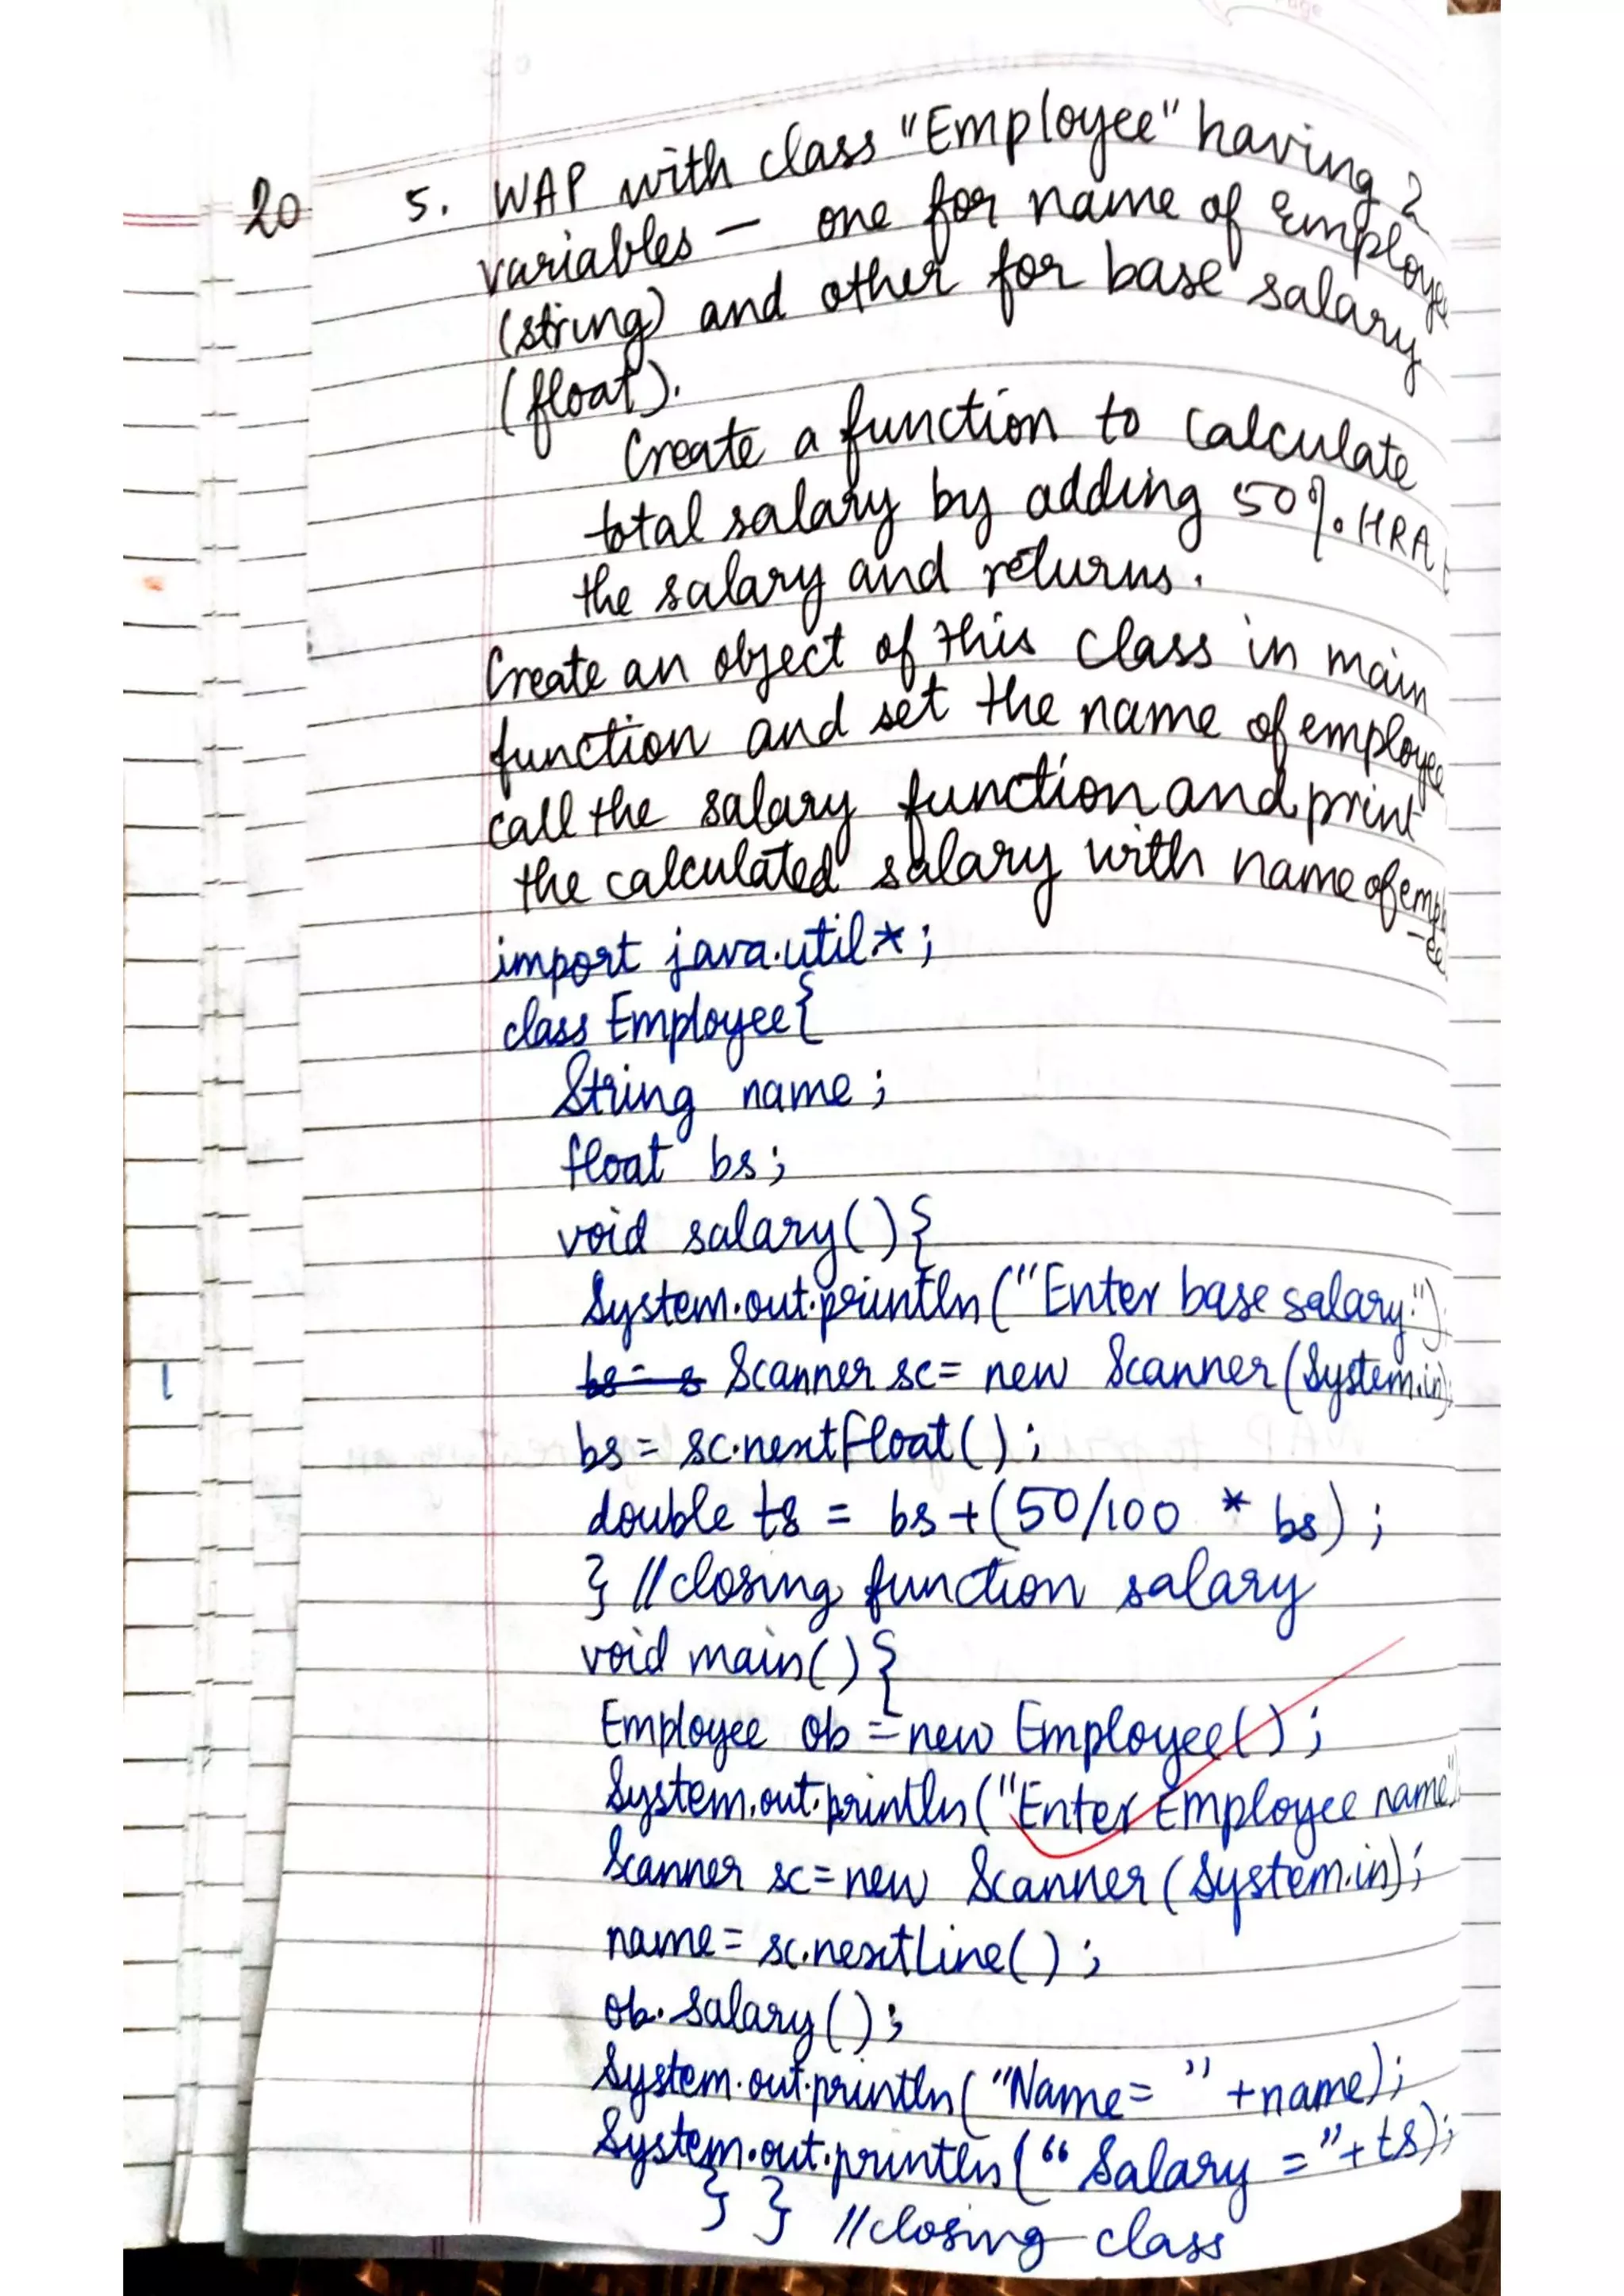 20 5. WAP with class "Employee" having 2
variables – one for name of Employe
(string) and other for base salary
(float).
Create a function to calculate
total salary by adding 50% HRA
the salary and returns.
Create an object of this class in main
function and set the name of employee
call the salary function and print
the calculated salary with name of emp
-ee
import java.util*;
class Employee{
String name;
float bs;
void salary(){
System.out.println("Enter base salary:")
bs = s Scanner sc= new Scanner(System.in);
bs = sc.nextfloat();
double ts = bs+(50/100 * bs);
} //closing function salary
void main(){
Employee ob = new Employee();
System.out.println("Enter Employee name")
Scanner sc=new Scanner(System.in);
name= sc.nextLine();
ob.salary();
System.out.println("Name= "+name);
System.out.println("Salary ="+ts);
} } //closing class